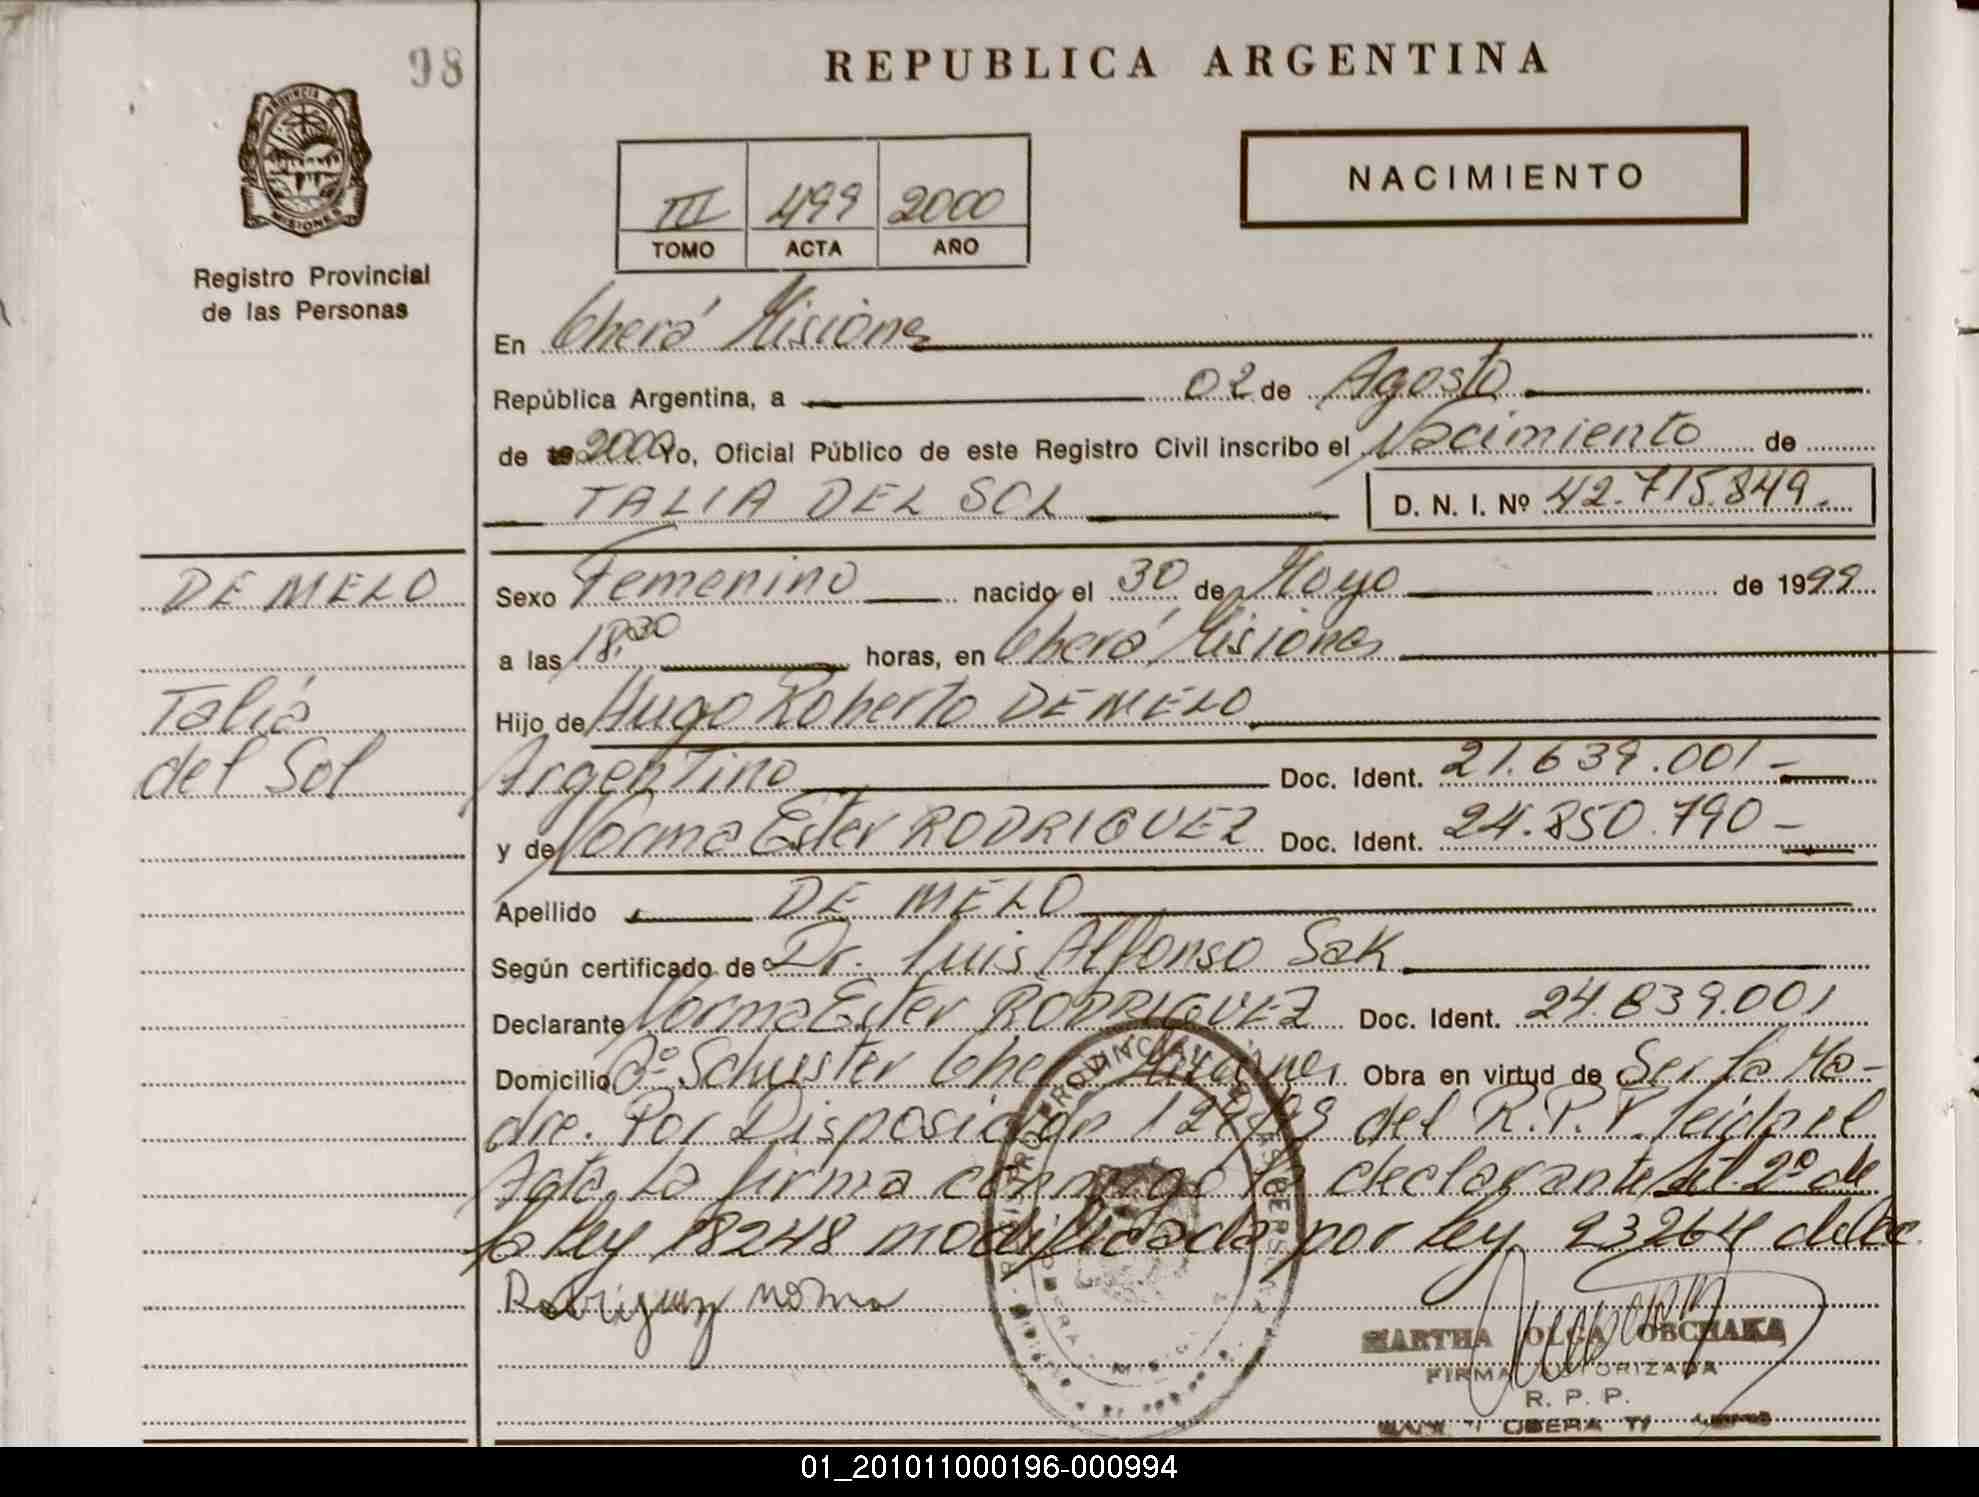 98
REPUBLICA ARGENTINA
PROVINCIA DE
MISIONES
Registro Provincial
de las Personas
III 499 2000
TOMO ACTA AÑO
NACIMIENTO
En Oberá Misiones
República Argentina, a 02 de Agosto
de 19 2000 Yo, Oficial Público de este Registro Civil inscribo el Nacimiento de
TALIA DEL SOL D. N. I. Nº 42.715.849.-
DE MELO
Talia
del Sol
Sexo Femenino nacido el 30 de Mayo de 1999
a las 18:30 horas, en Oberá Misiones
Hijo de Hugo Roberto DE MELO
Argentino Doc. Ident. 21.639.001-
y de Norma Ester RODRIGUEZ Doc. Ident. 24.850.790-
Apellido DE MELO
Según certificado de Dr. Luis Alfonso Sak
Declarante Norma Ester RODRIGUEZ Doc. Ident. 24.839.001
Domicilio Bº Schuster Oberá Misiones Obra en virtud de Ser la Ma-
dre. Por Disposición del R.P.P. leida el
Acta, la firma conmigo la declarante 2º de
la ley 18248 modificada por ley 23264
Rodriguez Norma
MARTHA OLGA OBCHAKA
FIRMA AUTORIZADA
R. P. P.
OBERA
01_201011000196-000994